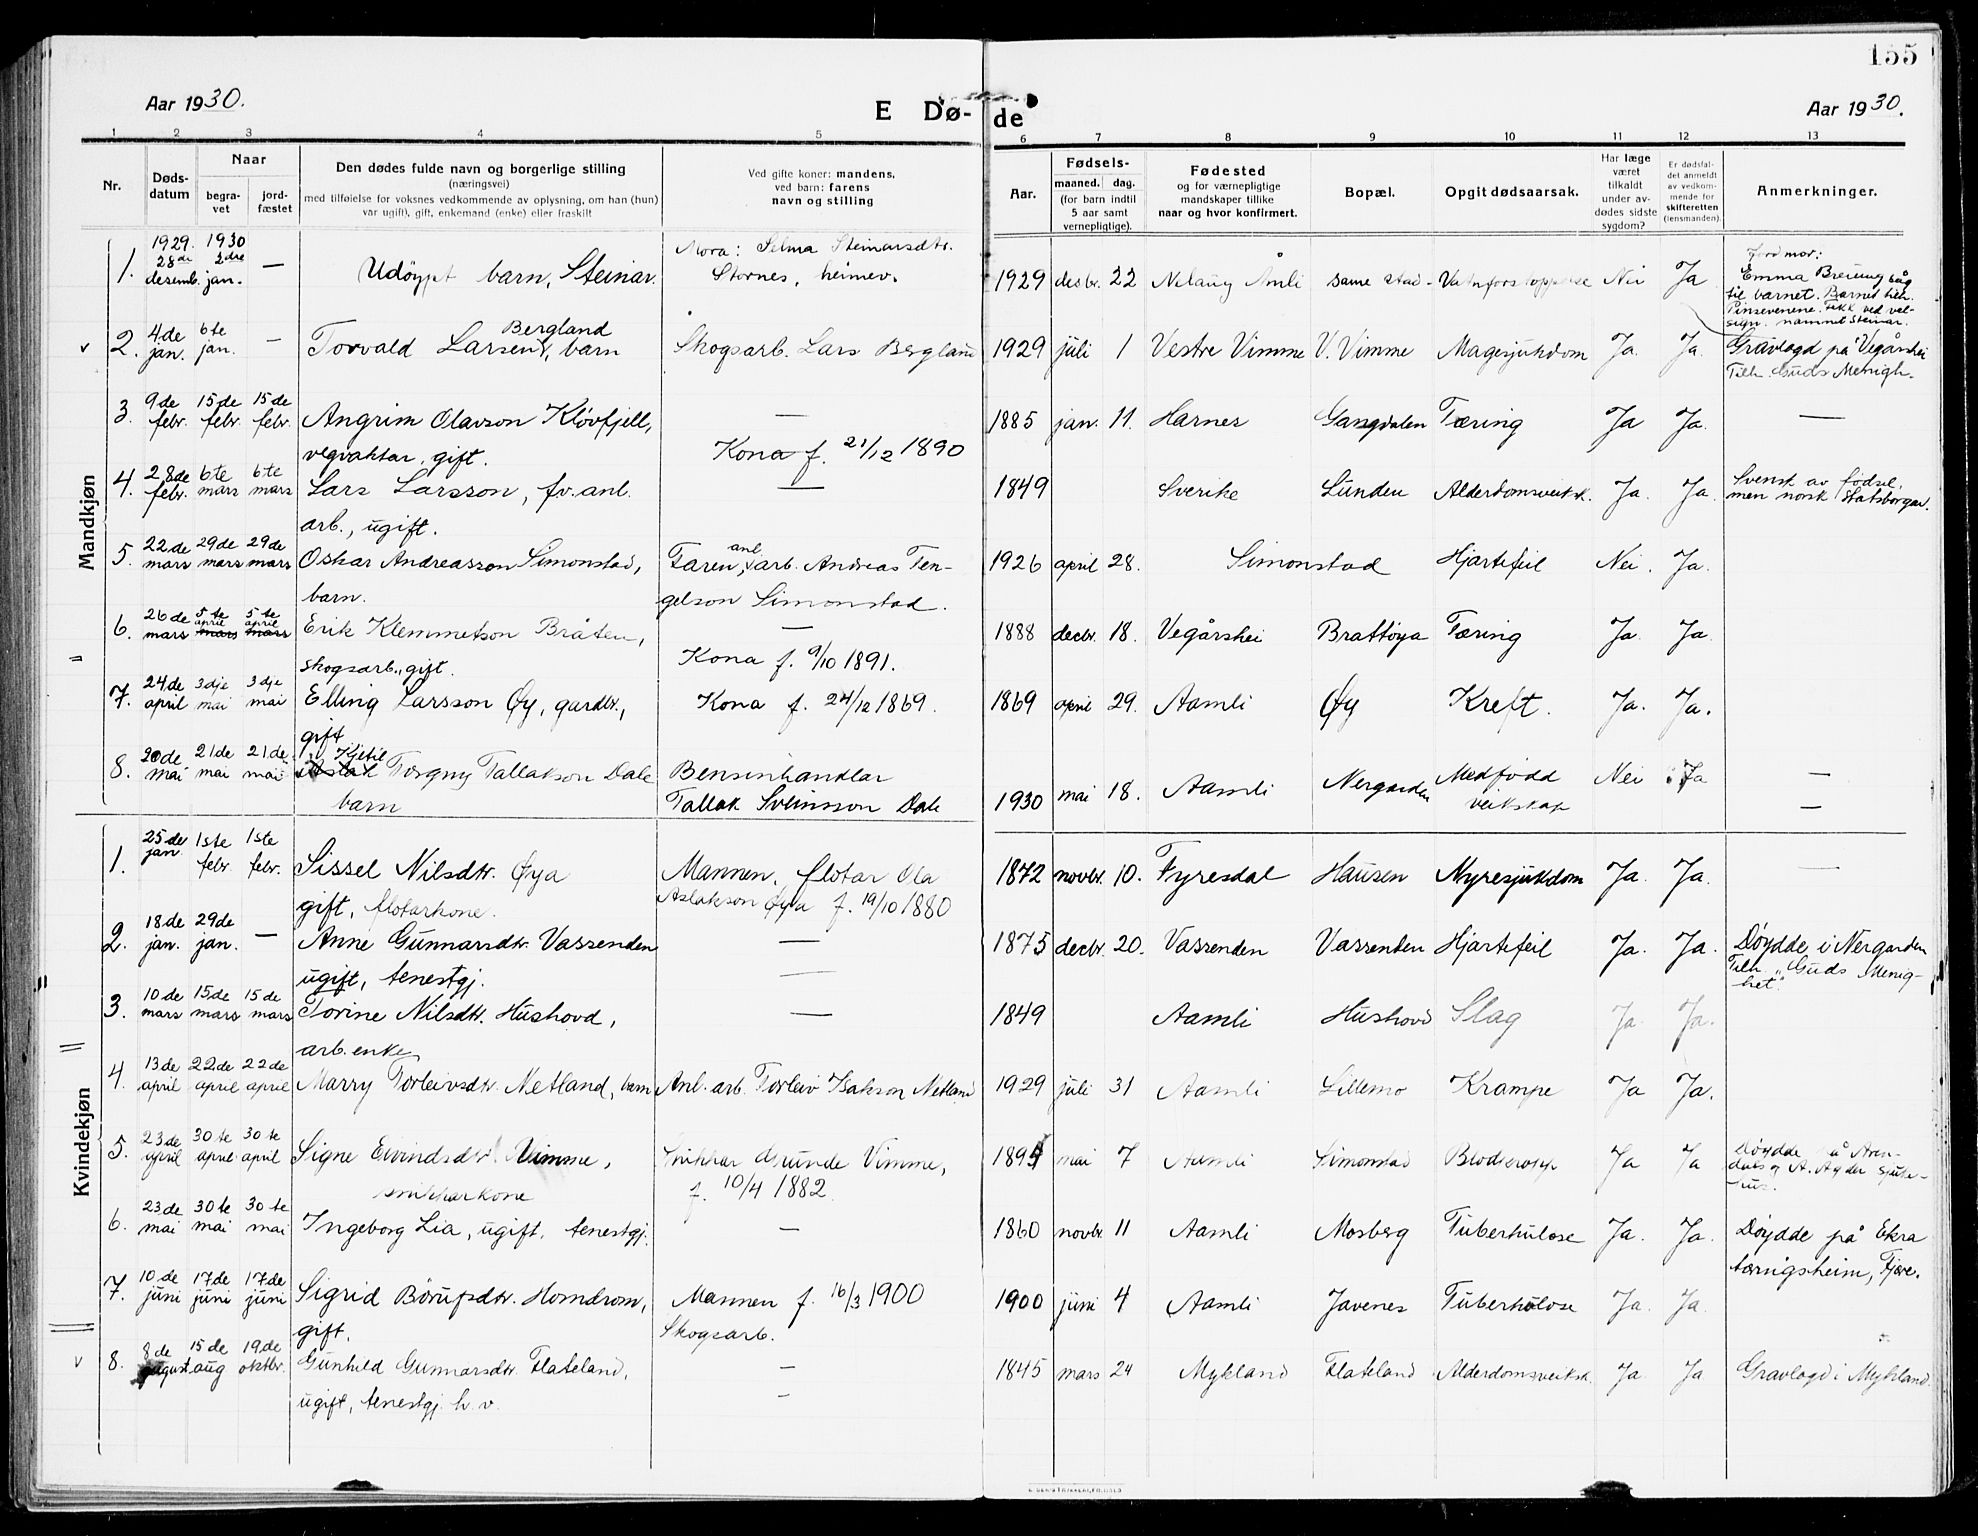 155
Aar 1930.
E Dø-de
Aar 1930.
1 2 3 4 5 6 7 8 9 10 11 12 13
Nr.
Døds-
datum
Naar
begra-
vet
jord-
fæstet
Den dødes fulde navn og borgerlige stilling
(næringsvei)
med tilføielse for voksnes vedkommende av oplysning, om han (hun)
var ugift), gift, enkemand (enke) eller fraskilt
Ved gifte koner: mandens,
ved barn: farens
navn og stilling
Aar.
Fødsels-
maaned. dag.
(for barn indtil
5 aar samt
vernepligtige).
Fødested
og for værnepligtige
mandskaper tillike
naar og hvor konfirmert.
Bopæl.
Opgit dødsaarsak.
Har læge
været
tilkaldt
under av-
dødes sidste
sygdom?
Er dødsfal-
det anmeldt
av vedkom-
mende for
skifteretten
(lensmanden).
Anmerkninger.
Mandkjøn
1. 1929. 28de desemb. 1930 2dre jan. — Udöypt barn, Steinar. Mora: Selma Steinarsdtr. Stornes, heimev. 1929 desbr. 22 Nelaug Åmli same stad Nei Ja Jordmor: Emma Breiung såg til barnet. Barnet tilh. Pinsevenene. Fekk ved vel-sign. namnet Steinar.
v 2. 4.de jan. 6te jan. — Torvald Larsen Bergland, barn Skogsarb. Lars Bergland 1929 juli 1 Vestre Vimme V. Vimme Magesjukdom Ja. Ja. Gravlagd på Vegårshei Tilh. Guds Menigh.
3. 9de febr. 15de febr. 15de febr. Angrim Olavson Klövfjell, vegvaktar, gift. — Kona f. 21/12 1890 1885 jan. 11. Harnes Gangdalen Tæring Ja Ja. —
4. 28de febr. 6te mars 6te mars Lars Larsson, fv. anl. arb., ugift. — 1849 Sverike Lunden Alderdomsveiksk. Ja. Ja. Svensk av födsel, men norsk Statsborgar.
5. 22de mars 29de mars 29de mars Oskar Andreasson Simonstad, barn. Faren, anl. arb. Andreas Ten-gelson Simonstad. 1926 april 28. Simonstad Hjartefeil Nei. Ja.
6. 26de mars 5te april mars 5te april mars Erik Klemmetson Bråten, skogsarb., gift. — Kona f. 9/10 1891. 1888 decbr. 18. Vegårshei Brattøya Tæring Ja. Ja.
7. 24de april 3dje mai 3dje mai Elling Larsson Øy, gardbr., gift Kona f. 24/12 1869. 1869 april 29. Aamli Øy Kreft. Ja. Ja.
8. 20de mai 21de mai 21de mai Aslak Kjetil Torgny Tallakson Dale barn Bensinhandlar Tallak Sveinsson Dale 1930 mai 18. Aamli Nergarden Medfødd veikskap Nei Ja —
—
Kvindekjøn
1. 25de jan. 1ste febr. 1ste febr. Sissel Nilsdtr. Øya gift, flotarkone. Mannen, flotar Ola Aslakson Øya f. 19/10 1880 1872 novbr. 10. Fyresdal Hausen Nyresjukdom Ja. Ja. —
2. 18de jan. 29de jan. — Anne Gunnarsdtr. Vassenden ugift, tenestgj. — — 1875 decbr. 20. Vassenden Vassenden Hjartefeil Ja. Ja. Døydde i Nergarden Tilh. "Guds Menig-het".
3. 10de mars 15de mars 15de mars Torine Nilsdtr. Hushovd, arb. enke — 1849 Aamli Hushovd Slag Ja. Ja.
4. 13de april 22de april 22de april Marry Torleivsdtr. Netland, barn Anl. arb. Torleiv Isakson Netland 1929 juli 31 Aamli Lillemo Krampe Ja Ja.
5. 23de april 30te april 30te april Signe Eivindsdtr. Vimme, snikkarkone Snikkar Gunde Vimme, f. 10/4 1882 mai 7 Aamli Simonstad Ja Ja Døydde å Aren-dals og A. Agder sjuke-hus.
6. 23de mai 30te mai 30te mai Ingeborg Lia, ugift, tenestgj. — 1860 novbr. 11 Aamli Mosberg Tuberkulose Ja. Ja. Døydde på Ekra tæringsheim, Fjære.
7. 10de juni 17de juni 17.de juni Sigrid Börufsdtr. Homdrom, gift. Mannen f. 16/3 1900 Skogsarb. 1900 juni 4 Aamli Javenes Tuberkulose Ja. Ja.
v 8. 8de august. 15de aug 19.de oktbr. Gunhild Gunnarsdtr. Flateland, ugift, tenestgj. h. v. — — 1845 mars 24 Mykland Flateland Alderdomsveiksk. Ja Ja Gravlagd i Mykland.